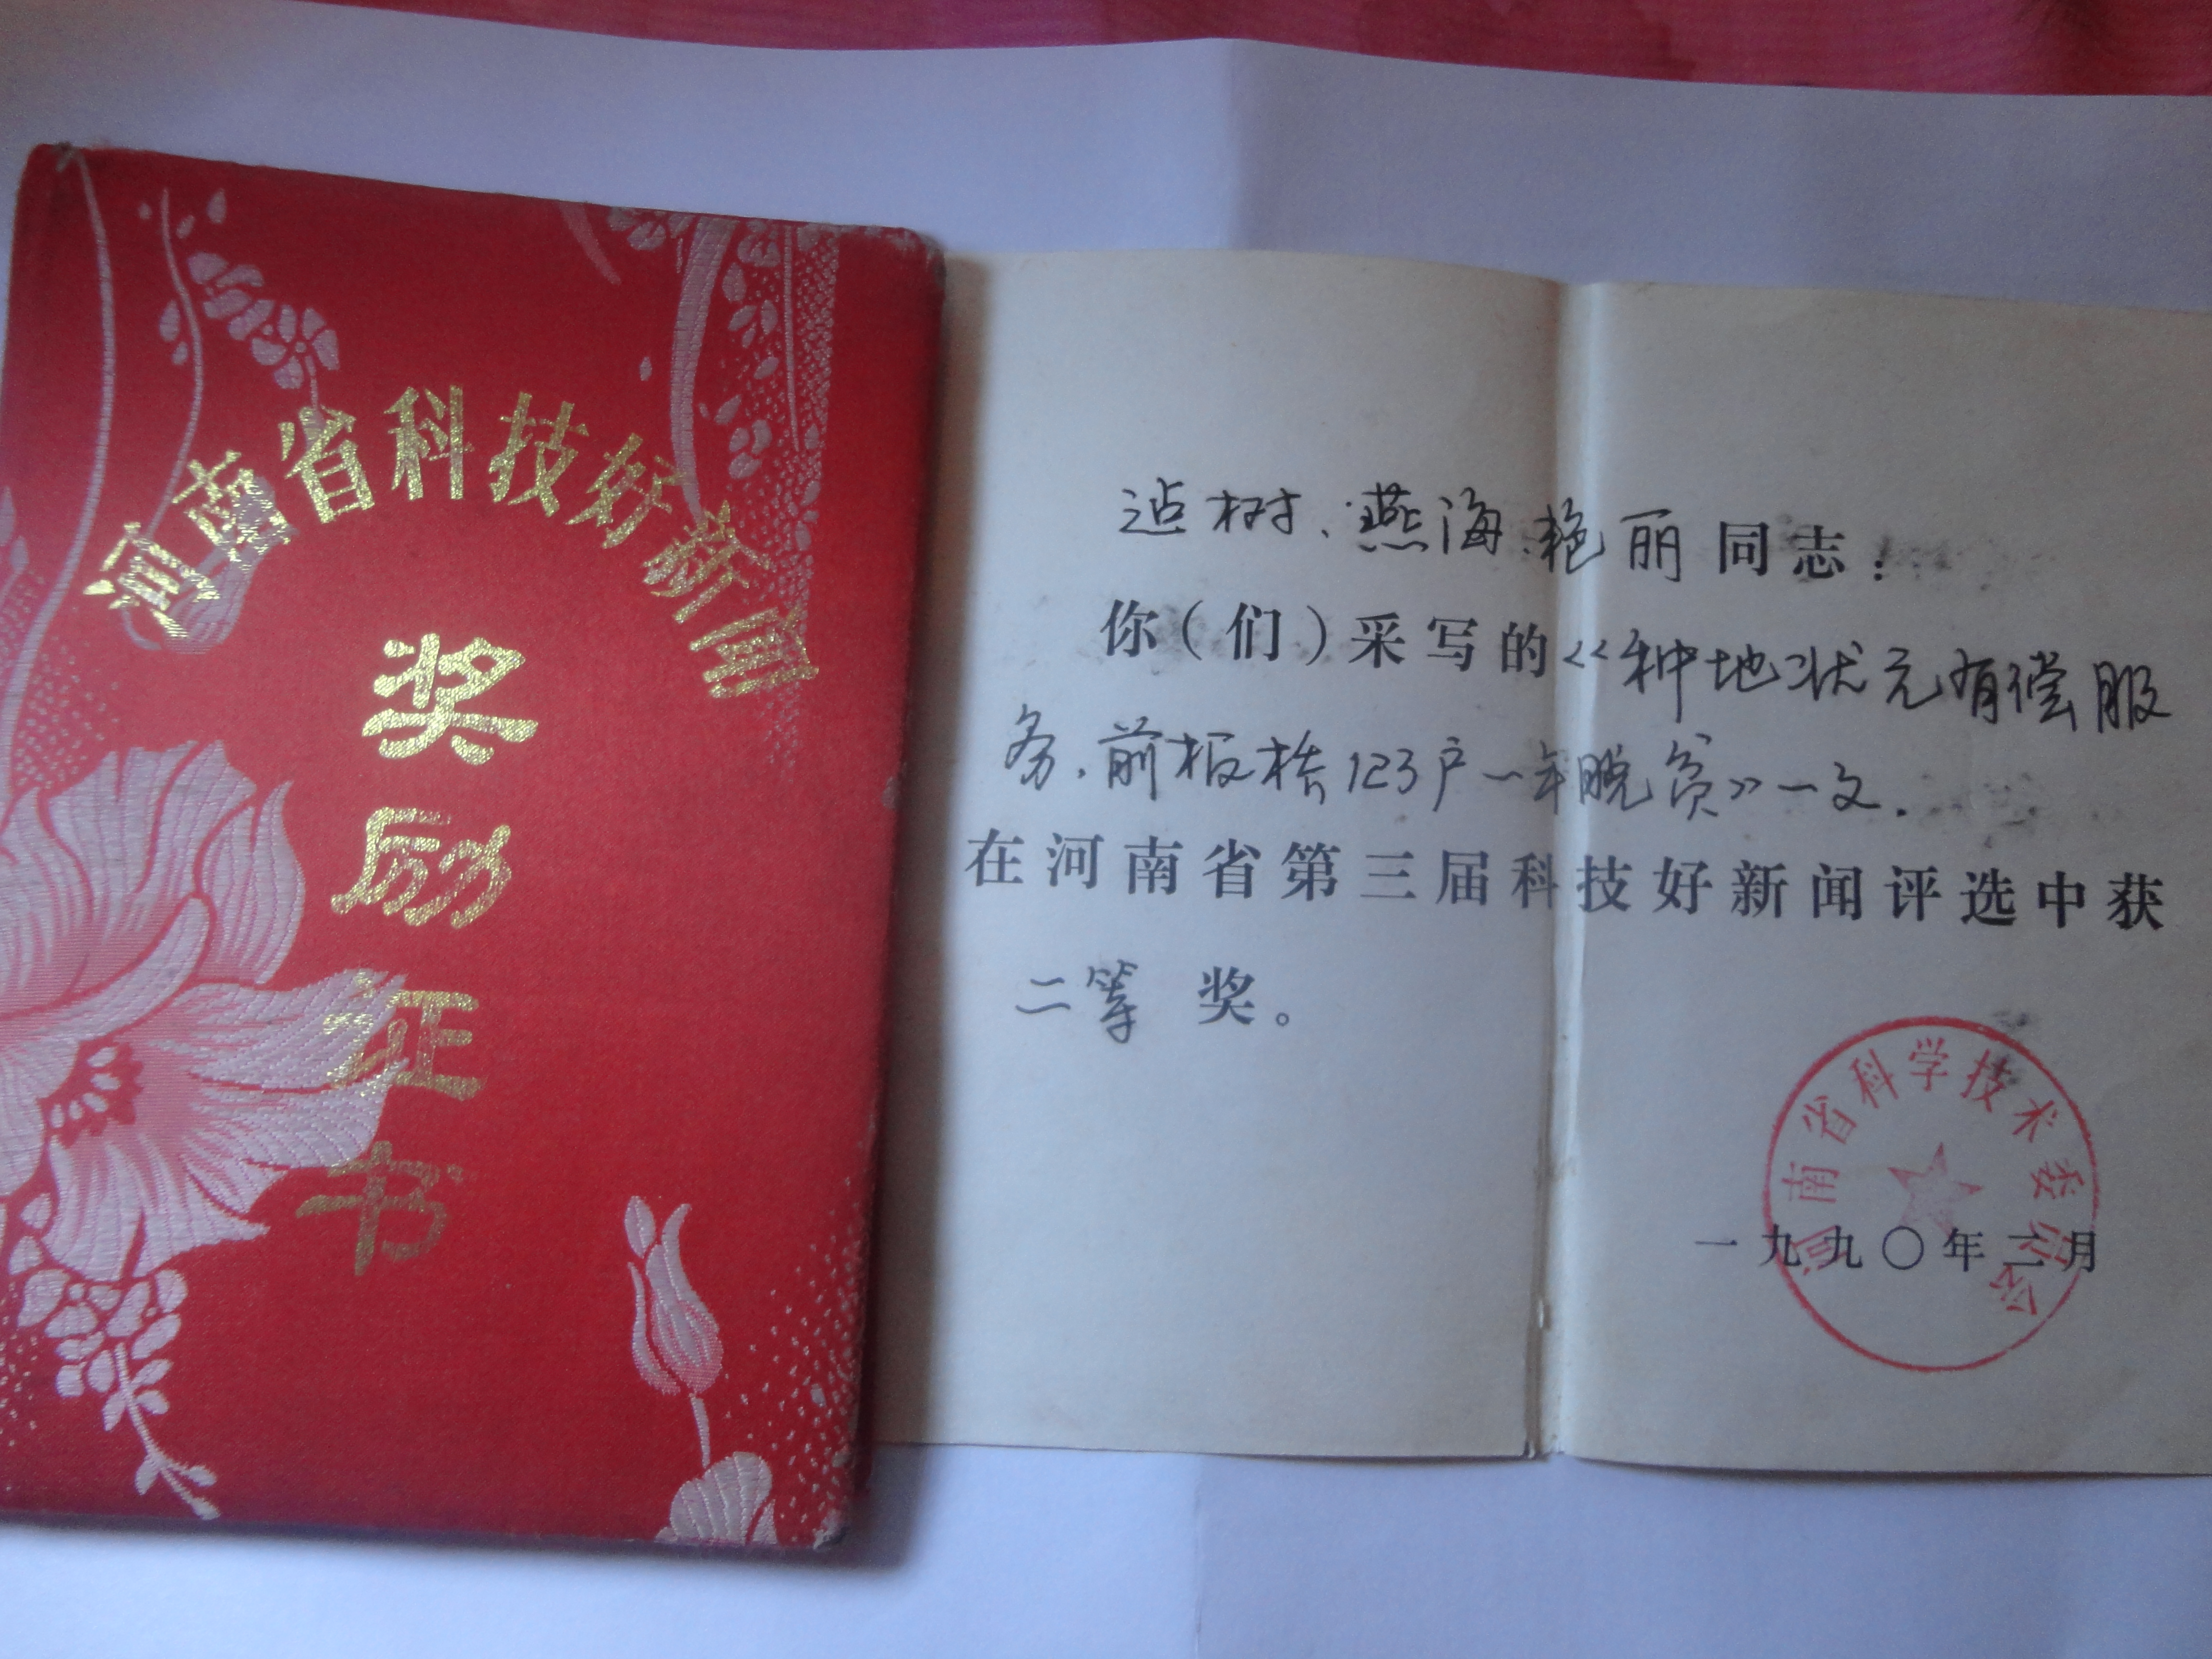 河南省科技好新闻
奖励证书
树、燕海、艳丽同志：
你（们）采写的《种地状元有偿服
务,前板桥123户一年脱贫》一文.
在河南省第三届科技好新闻评选中获
二等 奖。
河南省科学技术委员会
一九九〇年二月